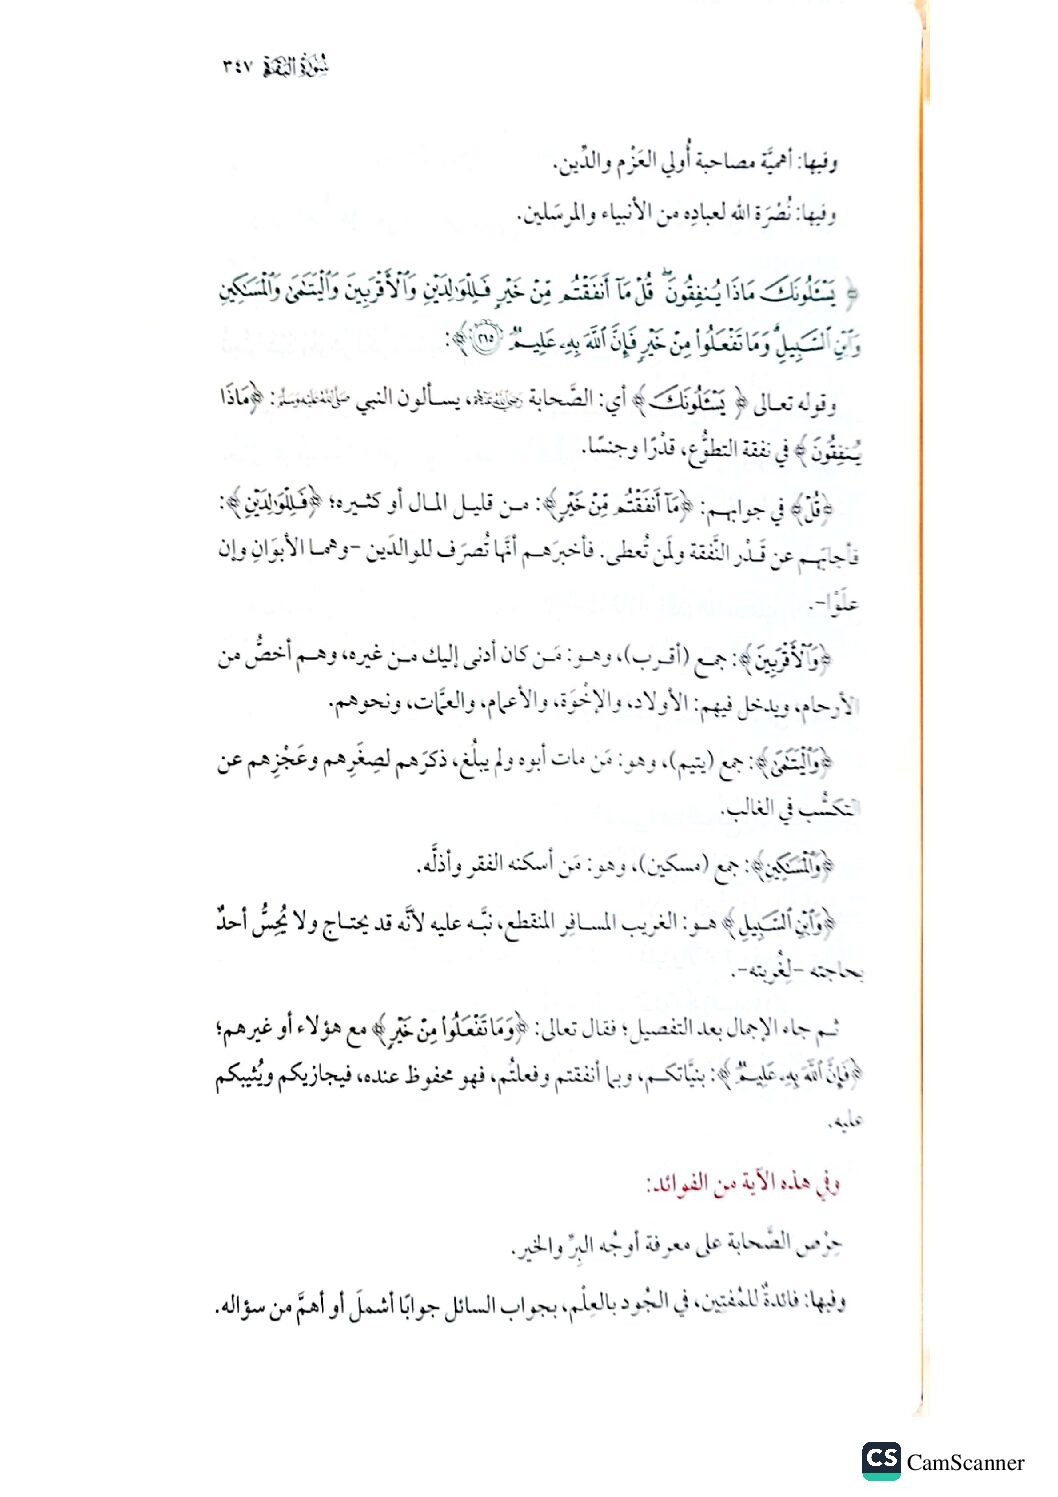 سُورَةُ البَقَرَةِ ٣٤٧
وفيها: أهميَّة مصاحبة أُولي العَزْم والدِّين.
وفيها: نُصْرَة الله لعبادِه من الأنبياء والمرسَلين.
﴿ يَسْـَٔلُونَكَ مَاذَا يُنفِقُونَ ۖ قُلْ مَآ أَنفَقْتُم مِّنْ خَيْرٍ فَلِلْوَٰلِدَيْنِ وَٱلْأَقْرَبِينَ وَٱلْيَتَٰمَىٰ وَٱلْمَسَٰكِينِ
وَٱبْنِ ٱلسَّبِيلِ ۗ وَمَا تَفْعَلُوا۟ مِنْ خَيْرٍ فَإِنَّ ٱللَّهَ بِهِۦ عَلِيمٌ ٢١٥ ﴾:
وقوله تعالى ﴿ يَسْـَٔلُونَكَ ﴾ أي: الصَّحابة رَضِيَ اللَّهُ عَنْهُمْ، يسألون النبي صَلَّى اللَّهُ عَلَيْهِ وَسَلَّمَ: ﴿مَاذَا
يُنفِقُونَ ﴾ في نفقة التطوُّع، قدْرًا وجنسًا.
﴿قُلْ﴾ في جوابهم: ﴿مَآ أَنفَقْتُم مِّنْ خَيْرٍ﴾: من قليل المال أو كثيره؛ ﴿فَلِلْوَٰلِدَيْنِ﴾:
فأجابَهم عن قَدْر النَّفقة ولمَن تُعطى. فأخبرَهم أنَّها تُصرَف للوالدَين -وهما الأبوَانِ وإن
علَوْا-.
﴿وَٱلْأَقْرَبِينَ﴾: جمع (أقرب)، وهو: مَن كان أدنى إليك من غيره، وهم أخصُّ من
الأرحام، ويدخل فيهم: الأولاد، والإخْوَة، والأعمام، والعمَّات، ونحوهم.
﴿وَٱلْيَتَٰمَىٰ﴾: جمع (يتيم)، وهو: مَن مات أبوه ولم يبلُغ، ذكرَهم لصِغَرِهم وعَجْزِهم عن
التكسُّب في الغالب.
﴿وَٱلْمَسَٰكِينِ﴾: جمع (مسكين)، وهو: مَن أسكنه الفقر وأذلَّه.
﴿وَٱبْنِ ٱلسَّبِيلِ ﴾ هو: الغريب المسافِر المنقطع، نبَّه عليه لأنَّه قد يحتاج ولا يُحِسُّ أحدٌ
بحاجته -لِغُربته-.
ثم جاء الإجمال بعد التفصيل؛ فقال تعالى: ﴿وَمَا تَفْعَلُوا۟ مِنْ خَيْرٍ﴾ مع هؤلاء أو غيرهم؛
﴿فَإِنَّ ٱللَّهَ بِهِۦ عَلِيمٌ ﴾: بنيَّاتكم، وبما أنفقتم وفعلتُم، فهو محفوظ عنده، فيجازيكم ويُثيبكم
عليه.
وفي هذه الآية من الفوائد:
حِرْص الصَّحابة على معرفة أوجُه البِرِّ والخير.
وفيها: فائدةٌ للمُفتِين، في الجُود بالعِلْم، بجواب السائل جوابًا أشملَ أو أهمَّ من سؤاله.
CS CamScanner